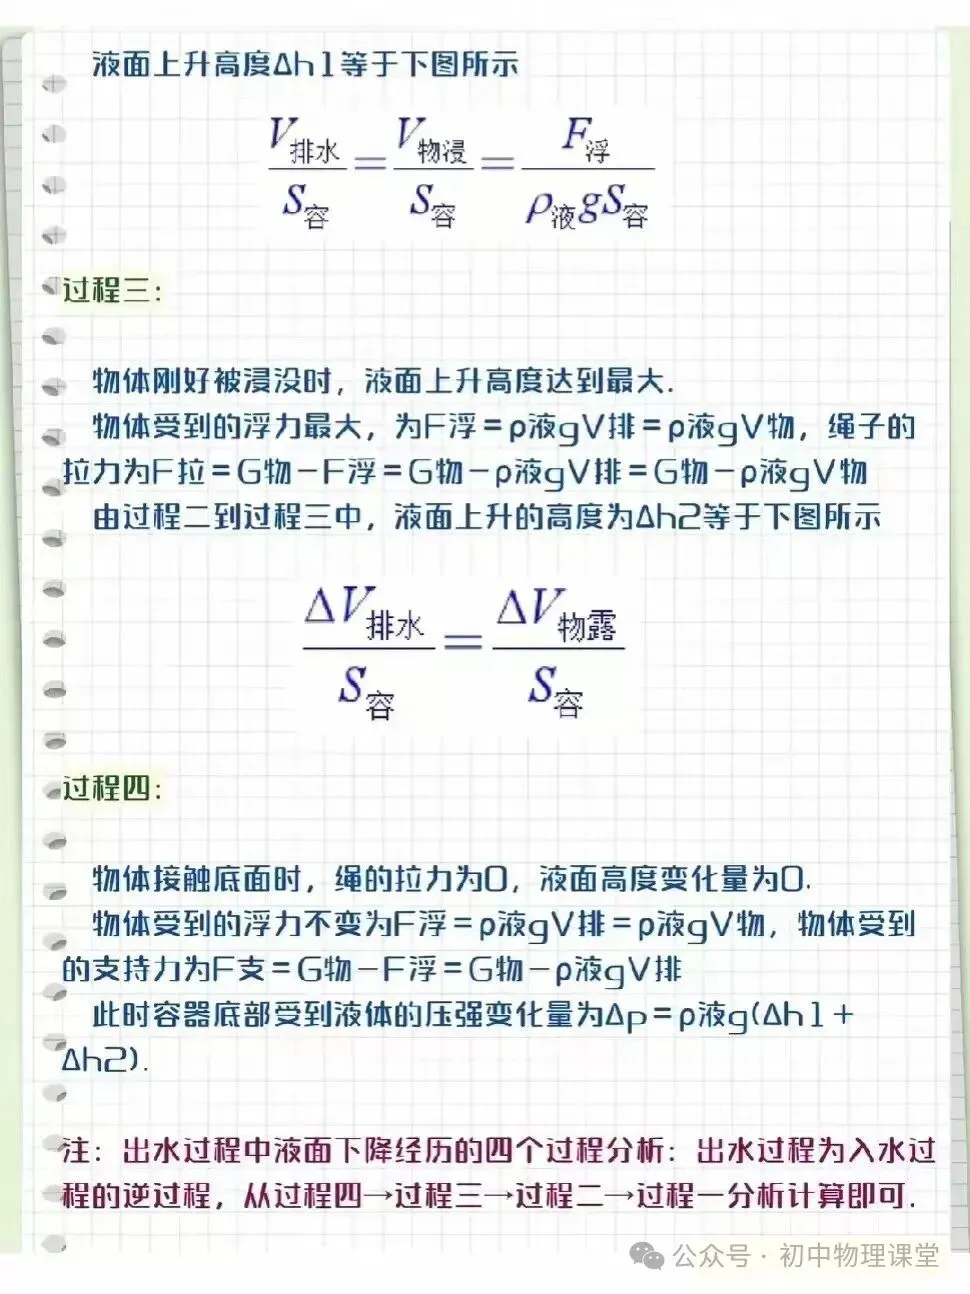 液面上升高度Δh1等于下图所示
V排水/S容=V物浸/S容=F浮/ρ液gS容
过程三：
物体刚好被浸没时，液面上升高度达到最大.
物体受到的浮力最大，为F浮=ρ液gV排=ρ液gV物，绳子的
拉力为F拉=G物-F浮=G物-ρ液gV排=G物-ρ液gV物
由过程二到过程三中，液面上升的高度为Δh2等于下图所示
ΔV排水/S容=ΔV物露/S容
过程四：
物体接触底面时，绳的拉力为0，液面高度变化量为0.
物体受到的浮力不变为F浮=ρ液gV排=ρ液gV物，物体受到
的支持力为F支=G物-F浮=G物-ρ液gV排
此时容器底部受到液体的压强变化量为Δp=ρ液g(Δh1+
Δh2).
注：出水过程中液面下降经历的四个过程分析：出水过程为入水过
程的逆过程，从过程四→过程三→过程二→过程一分析计算即可.
公众号·初中物理课堂